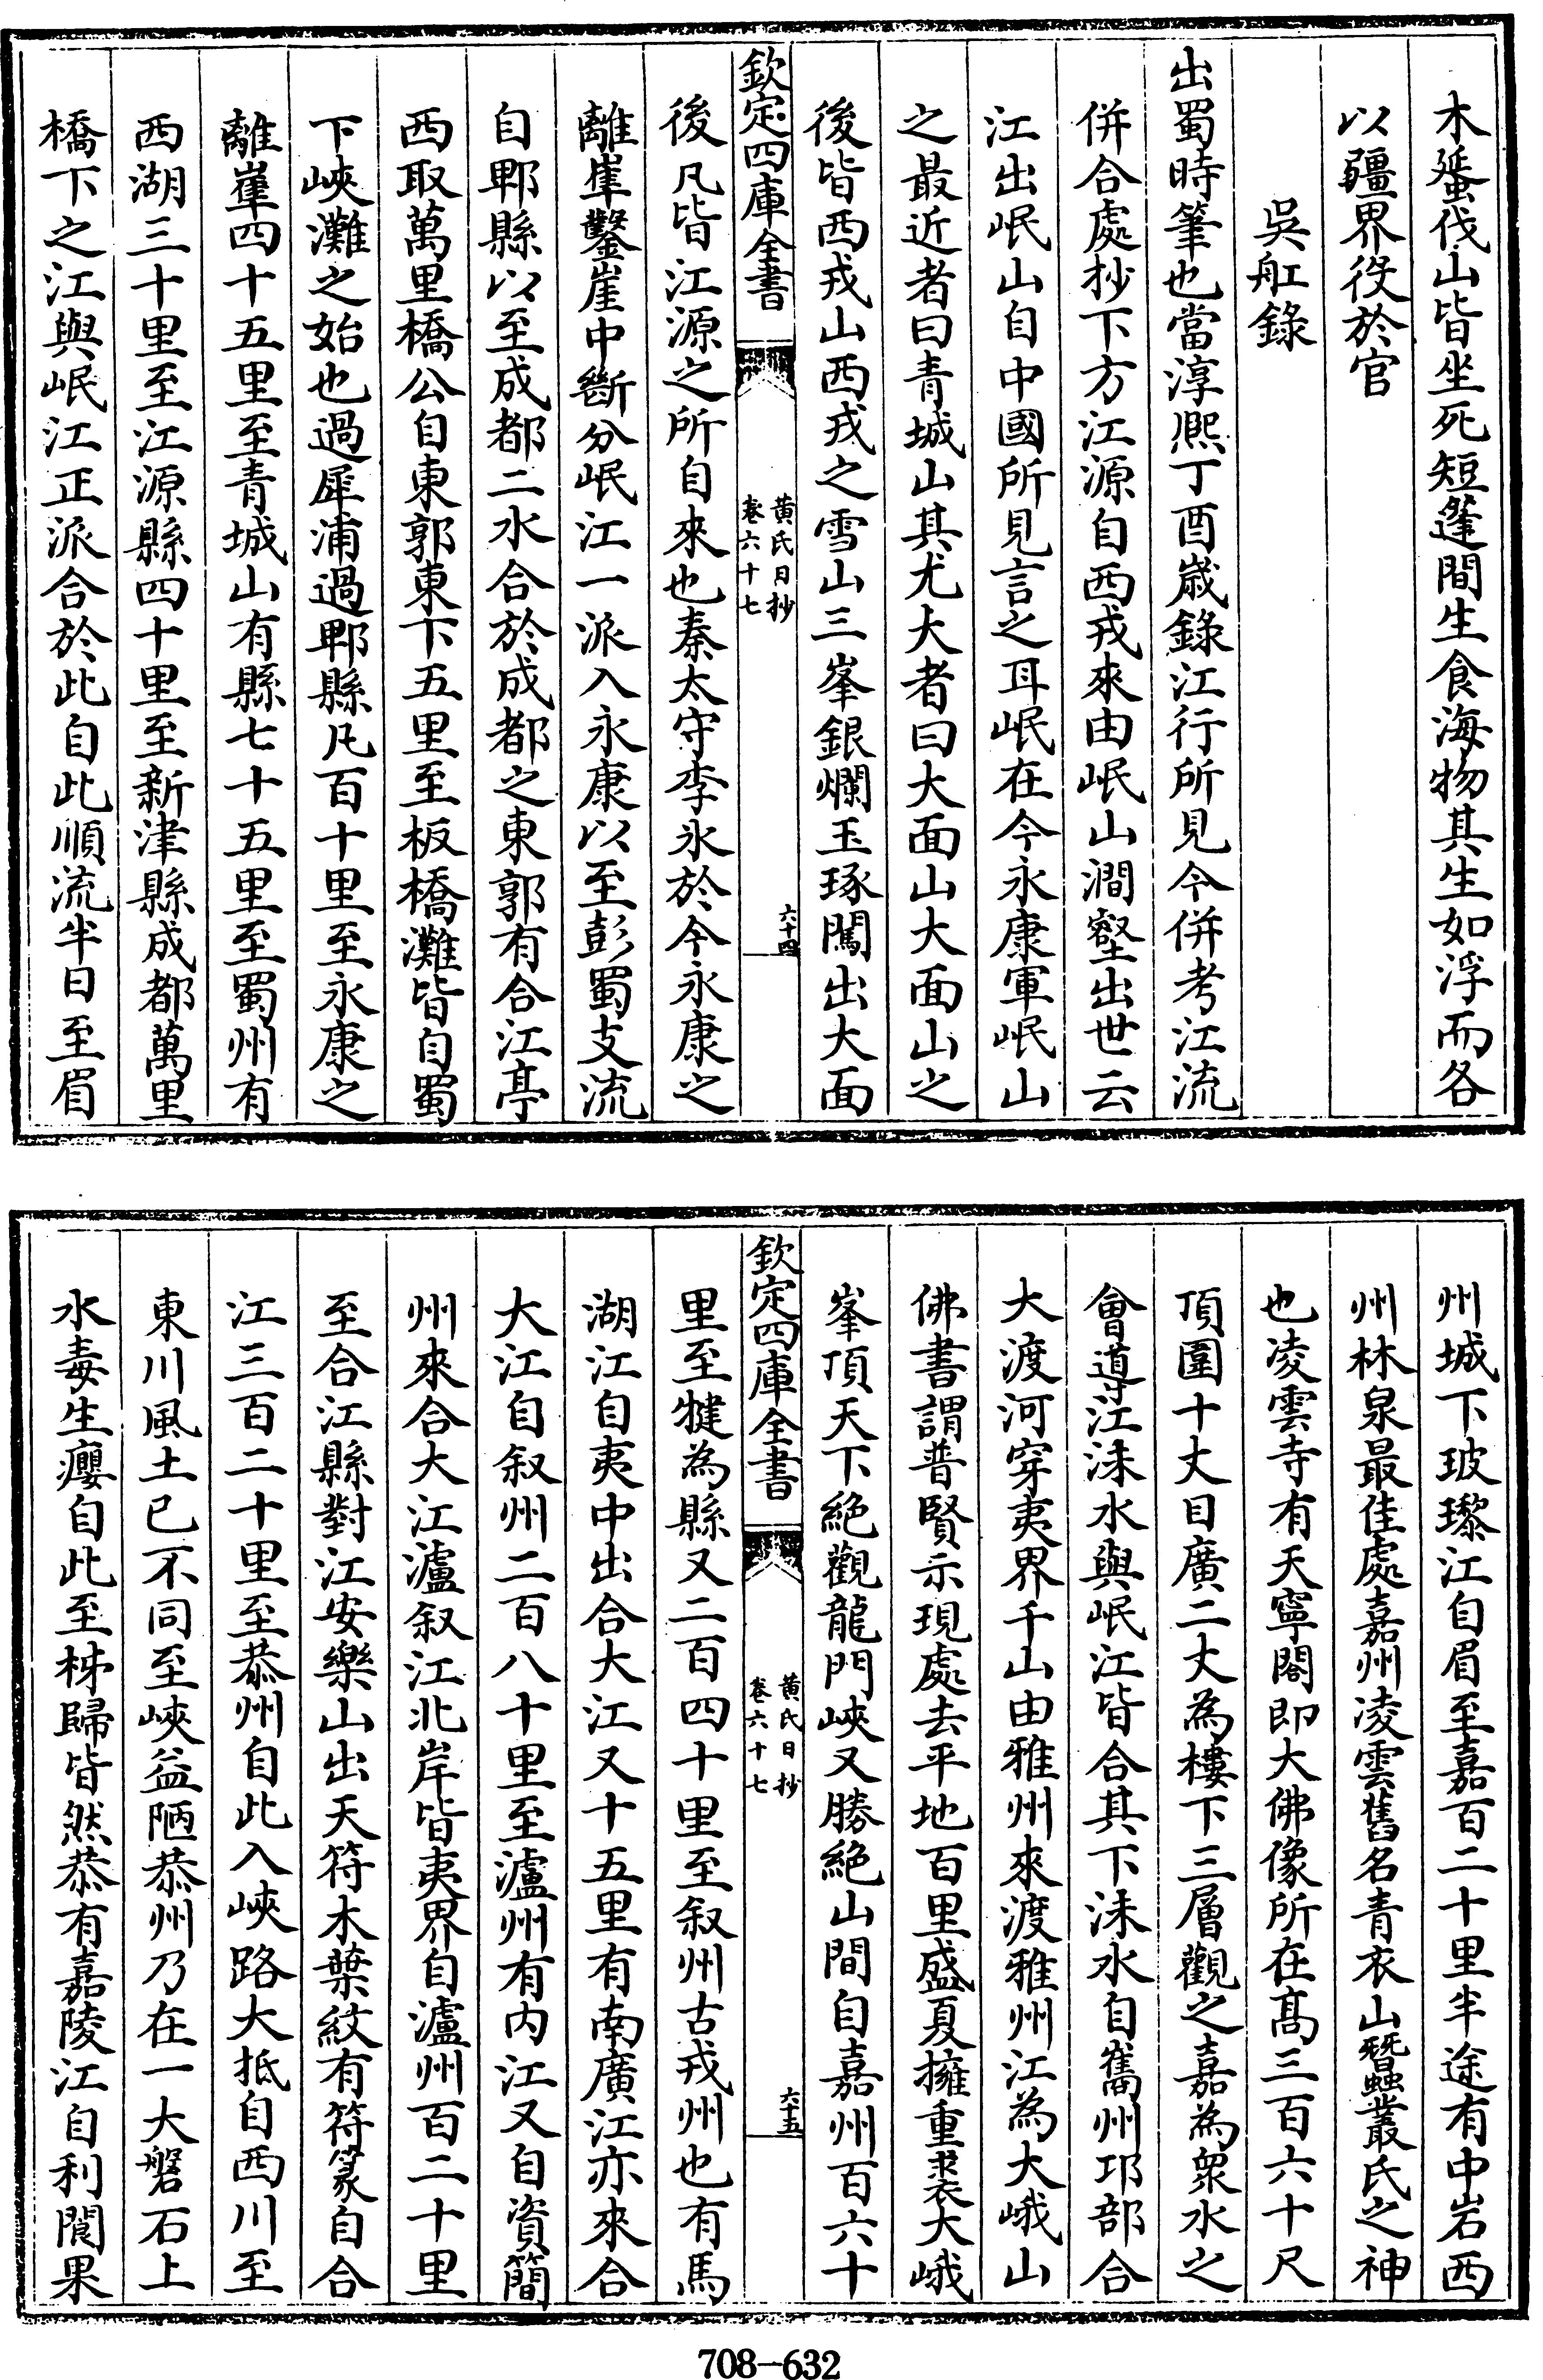 木蜑伐山皆坐死短篷間生食海物其生如浮而各
以疆界役於官
吳舡錄
出蜀時筆也當淳熈丁酉歲錄江行所見今併考江流
併合處抄下方江源自西戎來由岷山澗壑出世云
江出岷山自中國所見言之耳岷在今永康軍岷山
之最近者曰青城山其尤大者曰大面山大面山之
後皆西戎山西戎之雪山三峯銀爛玉琢闖出大面
欽定四庫全書
黃氏日抄
卷六十七
六十四
後凡皆江源之所自來也秦太守李氷於今永康之
離崋鑿崖中斷分岷江一派入永康以至彭蜀支流
自郫縣以至成都二水合於成都之東郭有合江亭
西取萬里橋公自東郭東下五里至板橋灘皆自蜀
下峽灘之始也過犀浦過郫縣凡百十里至永康之
離崋四十五里至青城山有縣七十五里至蜀州有
西湖三十里至江源縣四十里至新津縣成都萬里
橋下之江與岷江正派合於此自此順流半日至眉
州城下玻瓈江自眉至嘉百二十里半途有中岩西
州林泉最佳處嘉州凌雲舊名青衣山蠶叢氏之神
也凌雲寺有天寧閣即大佛像所在髙三百六十尺
頂圍十丈目廣二丈為樓下三層觀之嘉為衆水之
會導江沬水與岷江皆合其下沬水自嶲州邛部合
大渡河穿夷界千山由雅州來渡雅州江為大峨山
佛書謂普賢示現處去平地百里盛夏擁重裘大峨
峯頂天下絶觀龍門峽又勝絶山間自嘉州百六十
欽定四庫全書
黃氏日抄
卷六十七
六十五
里至犍為縣又二百四十里至叙州古戎州也有馬
湖江自夷中出合大江又十五里有南廣江亦來合
大江自叙州二百八十里至瀘州有内江又自資簡
州來合大江瀘叙江北岸皆夷界自瀘州百二十里
至合江縣對江安樂山出天符木葉紋有符篆自合
江三百二十里至恭州自此入峽路大抵自西川至
東川風土已不同至峽益陋恭州乃在一大磐石上
水毒生癭自此至秭歸皆然恭有嘉陵江自利閬果
708-632